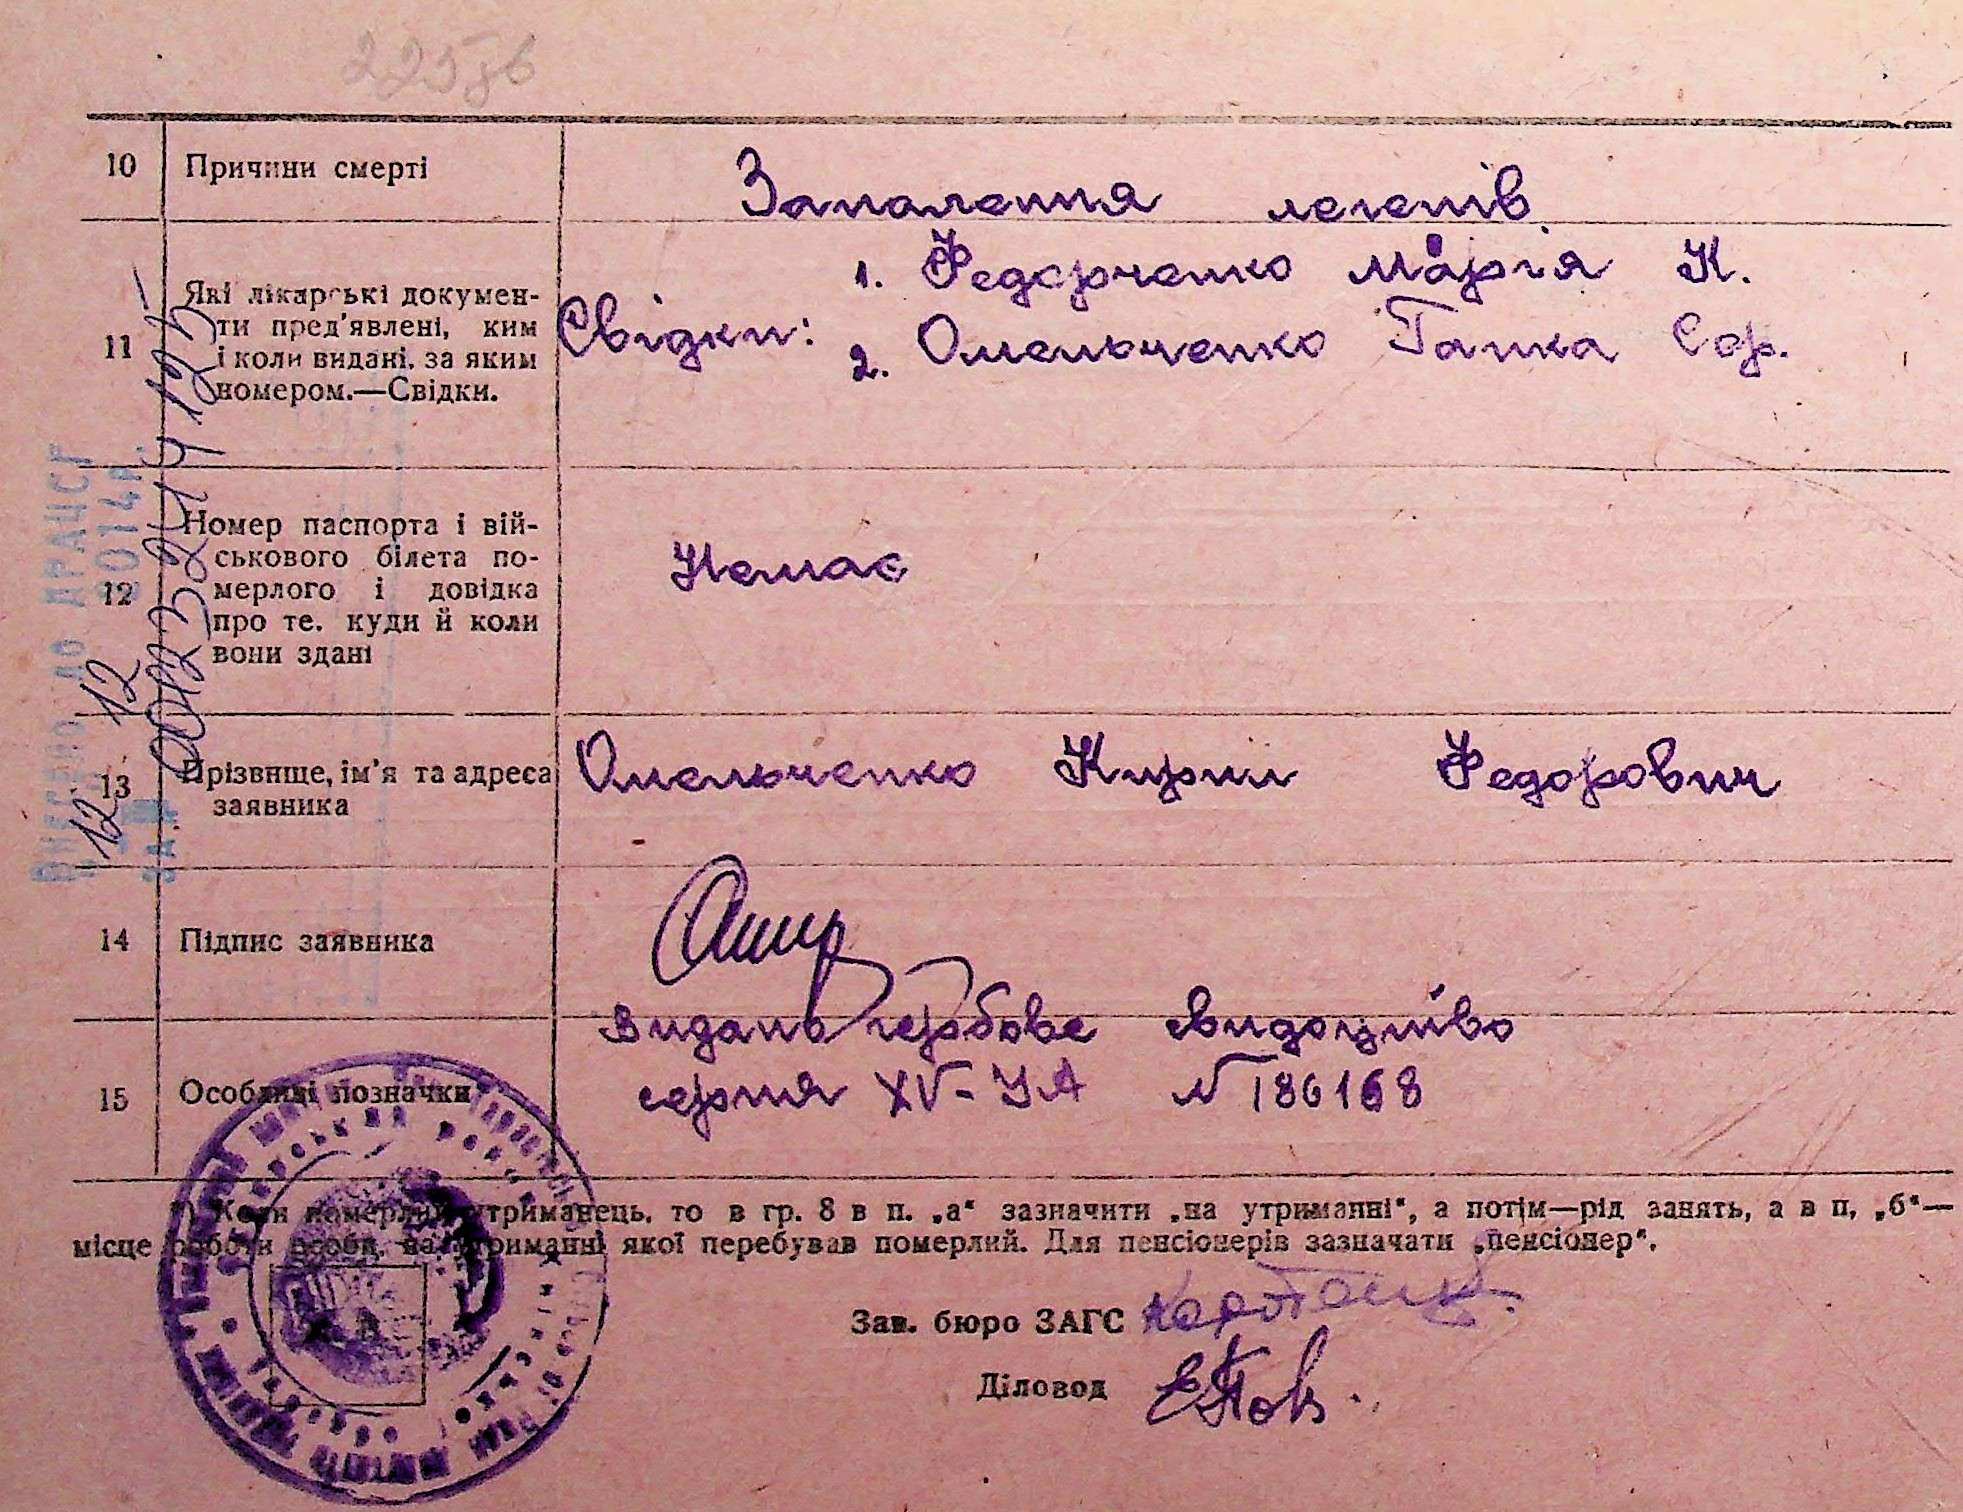 225зв
10 Причини смерті Запалення легенів
11 Які лікарські докумен-
ти пред'явлені, ким
і коли видані, за яким
номером.—Свідки.
Свідки: 1. Федорченко Марія К.
2. Омельченко Ганка Сор.
12 Номер паспорта і вій-
ськового білета по-
мерлого і довідка
про те. куди й коли
вони здані
Немає
13 Прізвище, ім'я та адреса
заявника
Омельченко Кирил Федорович
14 Підпис заявника
15 Особливі позначки
Видано гербове свидоцтво
серия XV-УА № 186168
ВНЕСЕНО ДО ДРАЦСГ
12 12 2014р.
ЗА №
*) Коли померлий утриманець, то в гр. 8 в п. „а“ зазначити „на утриманні“, а потім—рід занять, а в п, „б“—
місце роботи особи, на утриманні якої перебував померлий. Для пенсіонерів зазначати „пенсіонер“.
Зав. бюро ЗАГС
Діловод